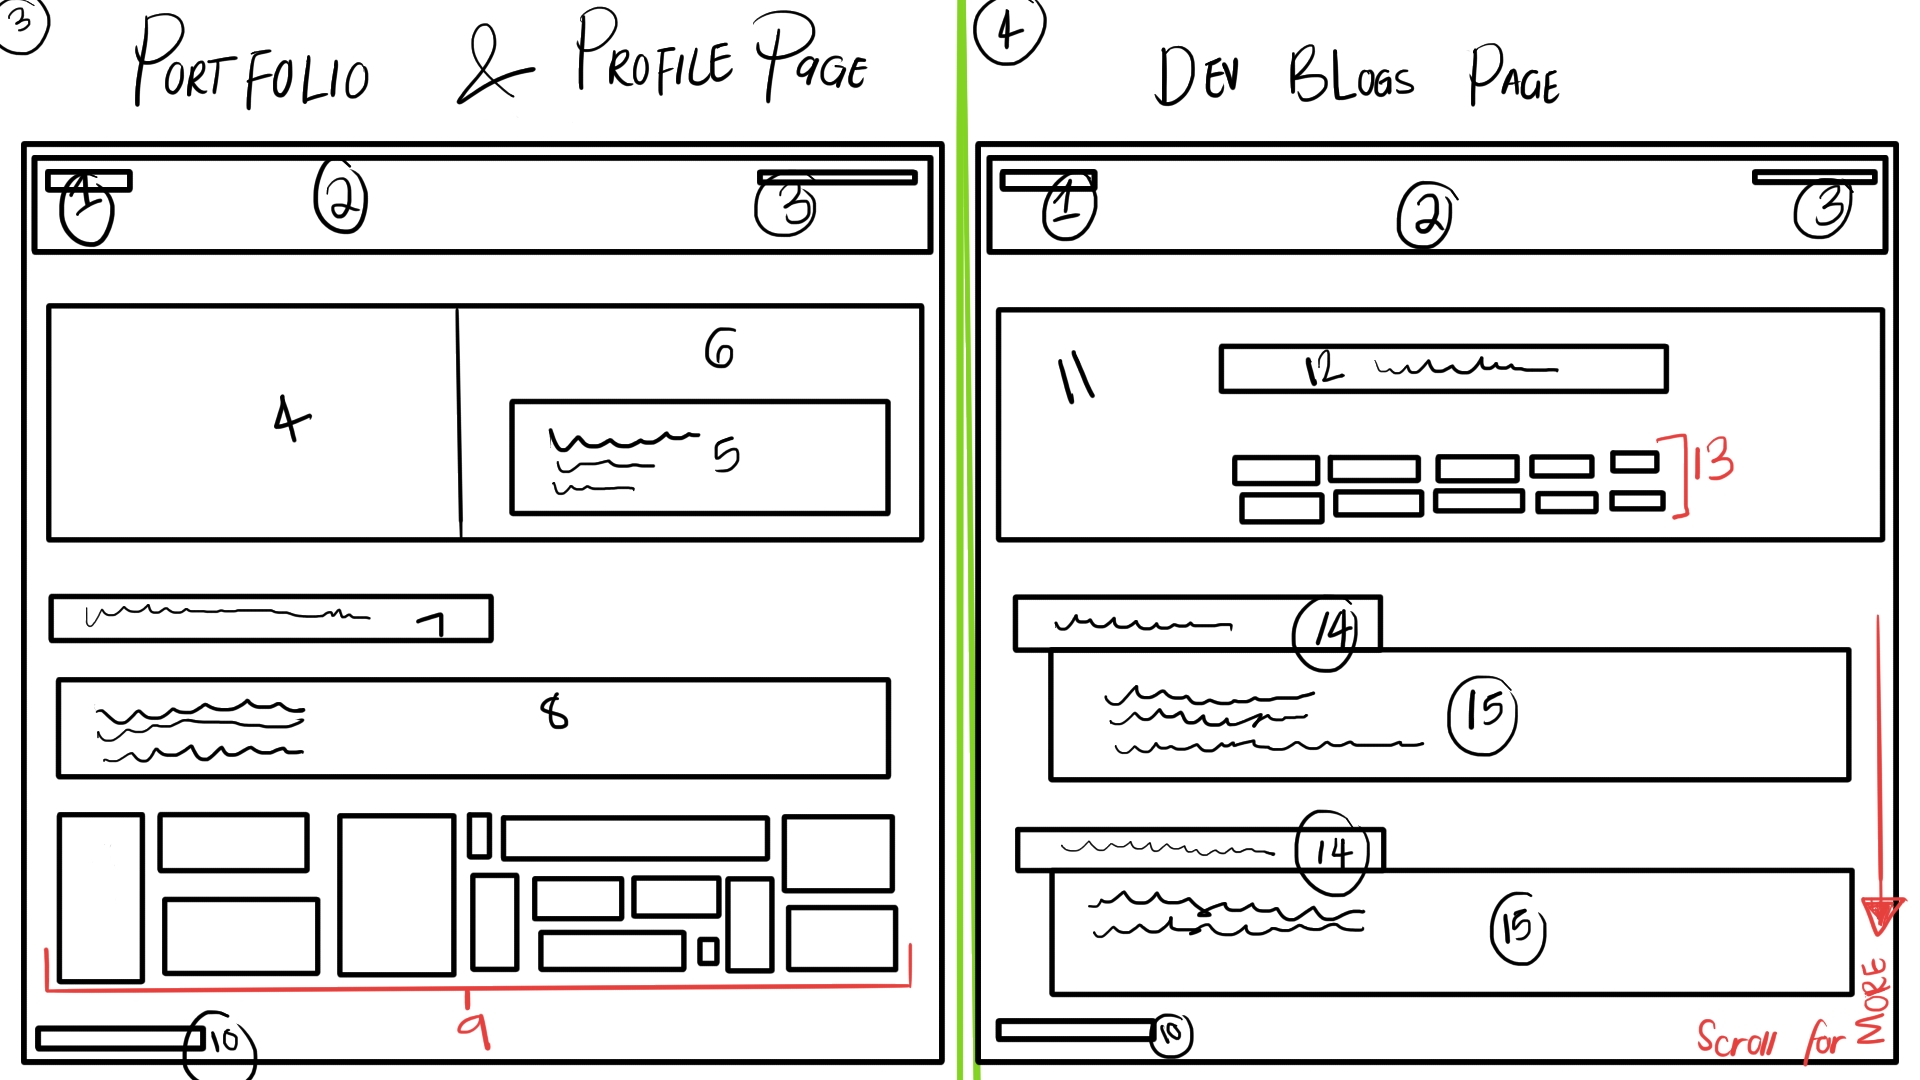 3
PORTFOLIO & PROFILE PAGE
1
2
3
4
6
5
7
8
9
10
4
DEV BLOGS PAGE
1
2
3
11
12
13
14
15
14
15
10
Scroll for MORE